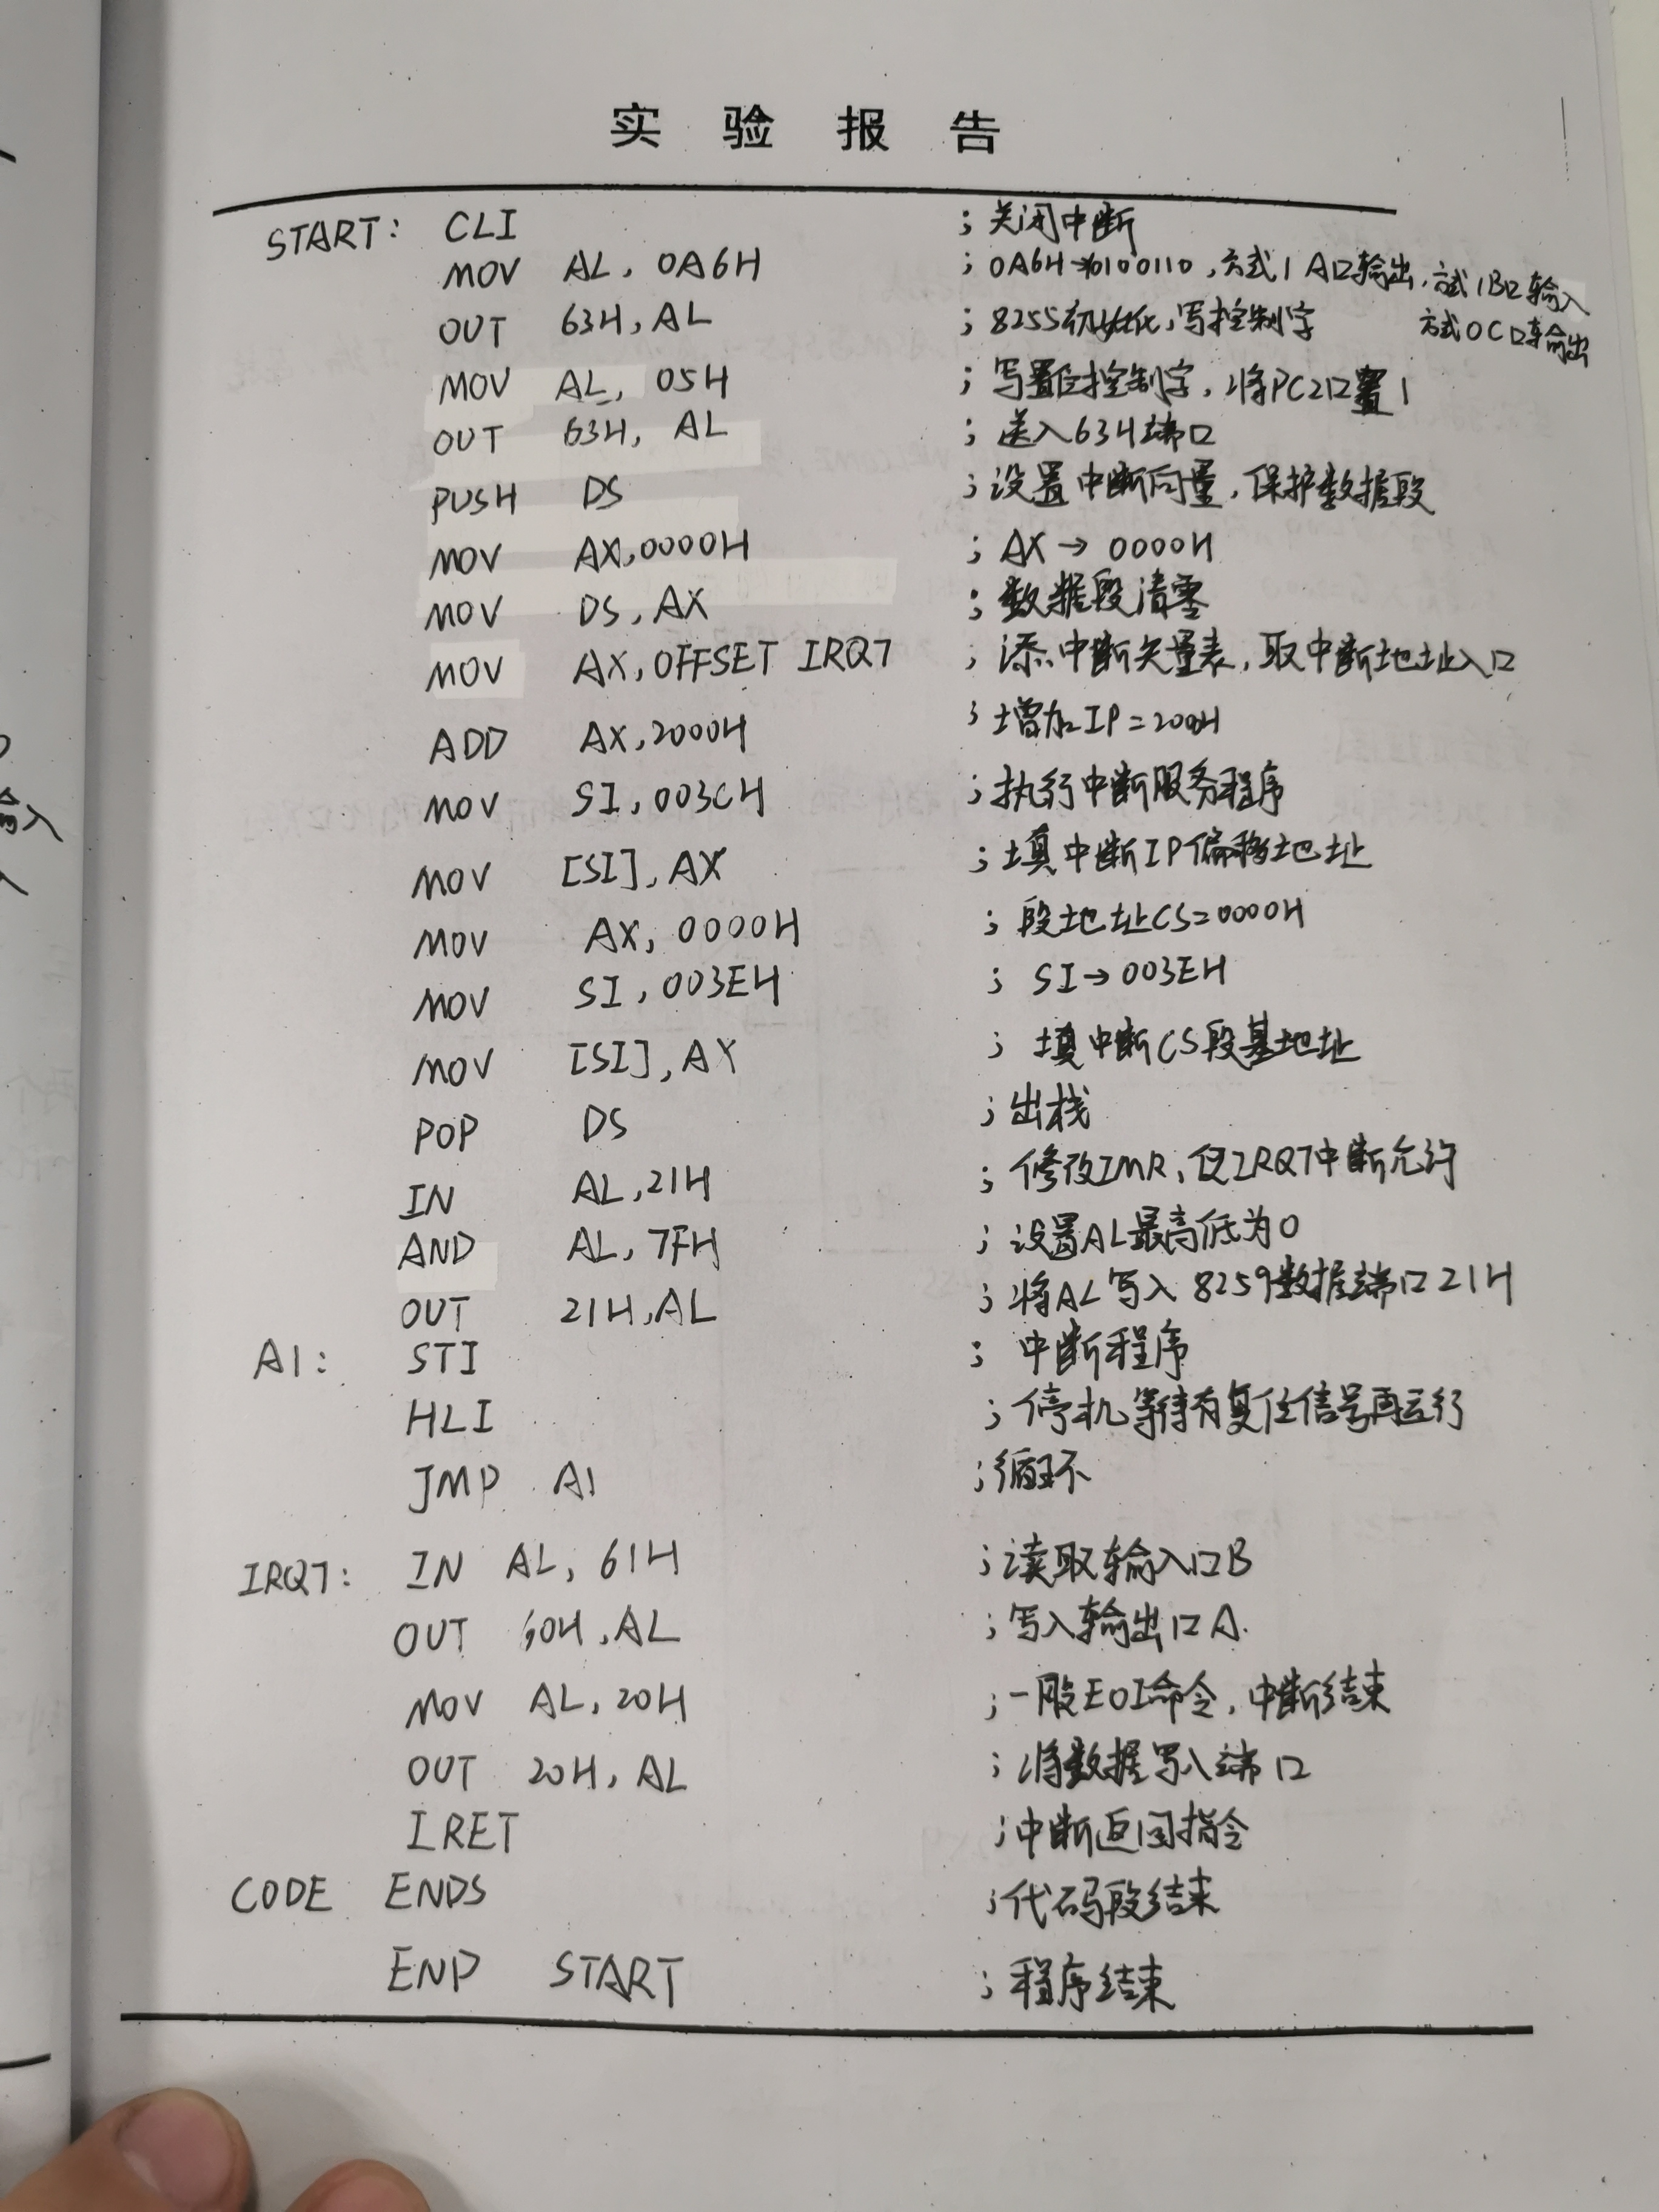 实验报告
START: CLI ;关闭中断
MOV AL, 0A6H ;0A6H→10100110,方式1A口输出,方式1B口输入
方式0C口输出
OUT 63H, AL ;8255初始化,写控制字
MOV AL, 05H ;写置位控制字,将PC2口置1
OUT 63H, AL ;送入63H端口
PUSH DS ;设置中断向量,保护数据段
MOV AX,0000H ;AX→0000H
MOV DS,AX ;数据段清零
MOV AX,OFFSET IRQ7 ;添中断矢量表,取中断地址入口
ADD AX,2000H ;增加IP=2000H
MOV SI,003CH ;执行中断服务程序
MOV [SI],AX ;填中断IP偏移地址
MOV AX,0000H ;段地址CS=0000H
MOV SI,003EH ;SI→003EH
MOV [SI],AX ;填中断CS段基地址
POP DS ;出栈
IN AL,21H ;修改IMR,仅IRQ7中断允许
AND AL,7FH ;设置AL最高低为0
OUT 21H,AL ;将AL写入8259数据端口21H
A1: STI ;中断程序
HLI ;停机等待有复位信号再运行
JMP A1 ;循环
IRQ7: IN AL, 61H ;读取输入口B
OUT 60H,AL ;写入输出口A.
MOV AL,20H ;一般EOI命令,中断结束
OUT 20H,AL ;将数据写入端口
IRET ;中断返回指令
CODE ENDS ;代码段结束
END START ;程序结束
输入
入